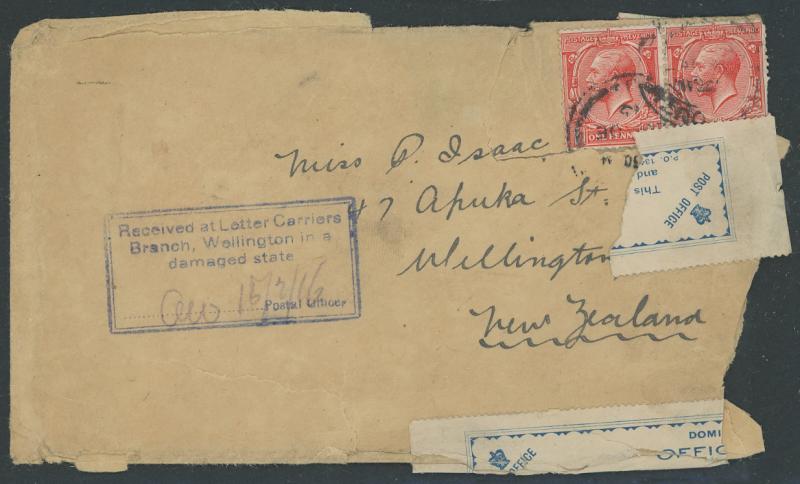 POSTAGE REVENUE
POSTAGE REVENUE
ONE PENNY
Miss P. Isaac
47 Apuka St.
Wellington
New Zealand
Received at Letter Carriers
Branch, Wellington in a
damaged state
Postal Officer
POST OFFICE
This
and
P.O.
DOMI
OFFIC
OFFICE